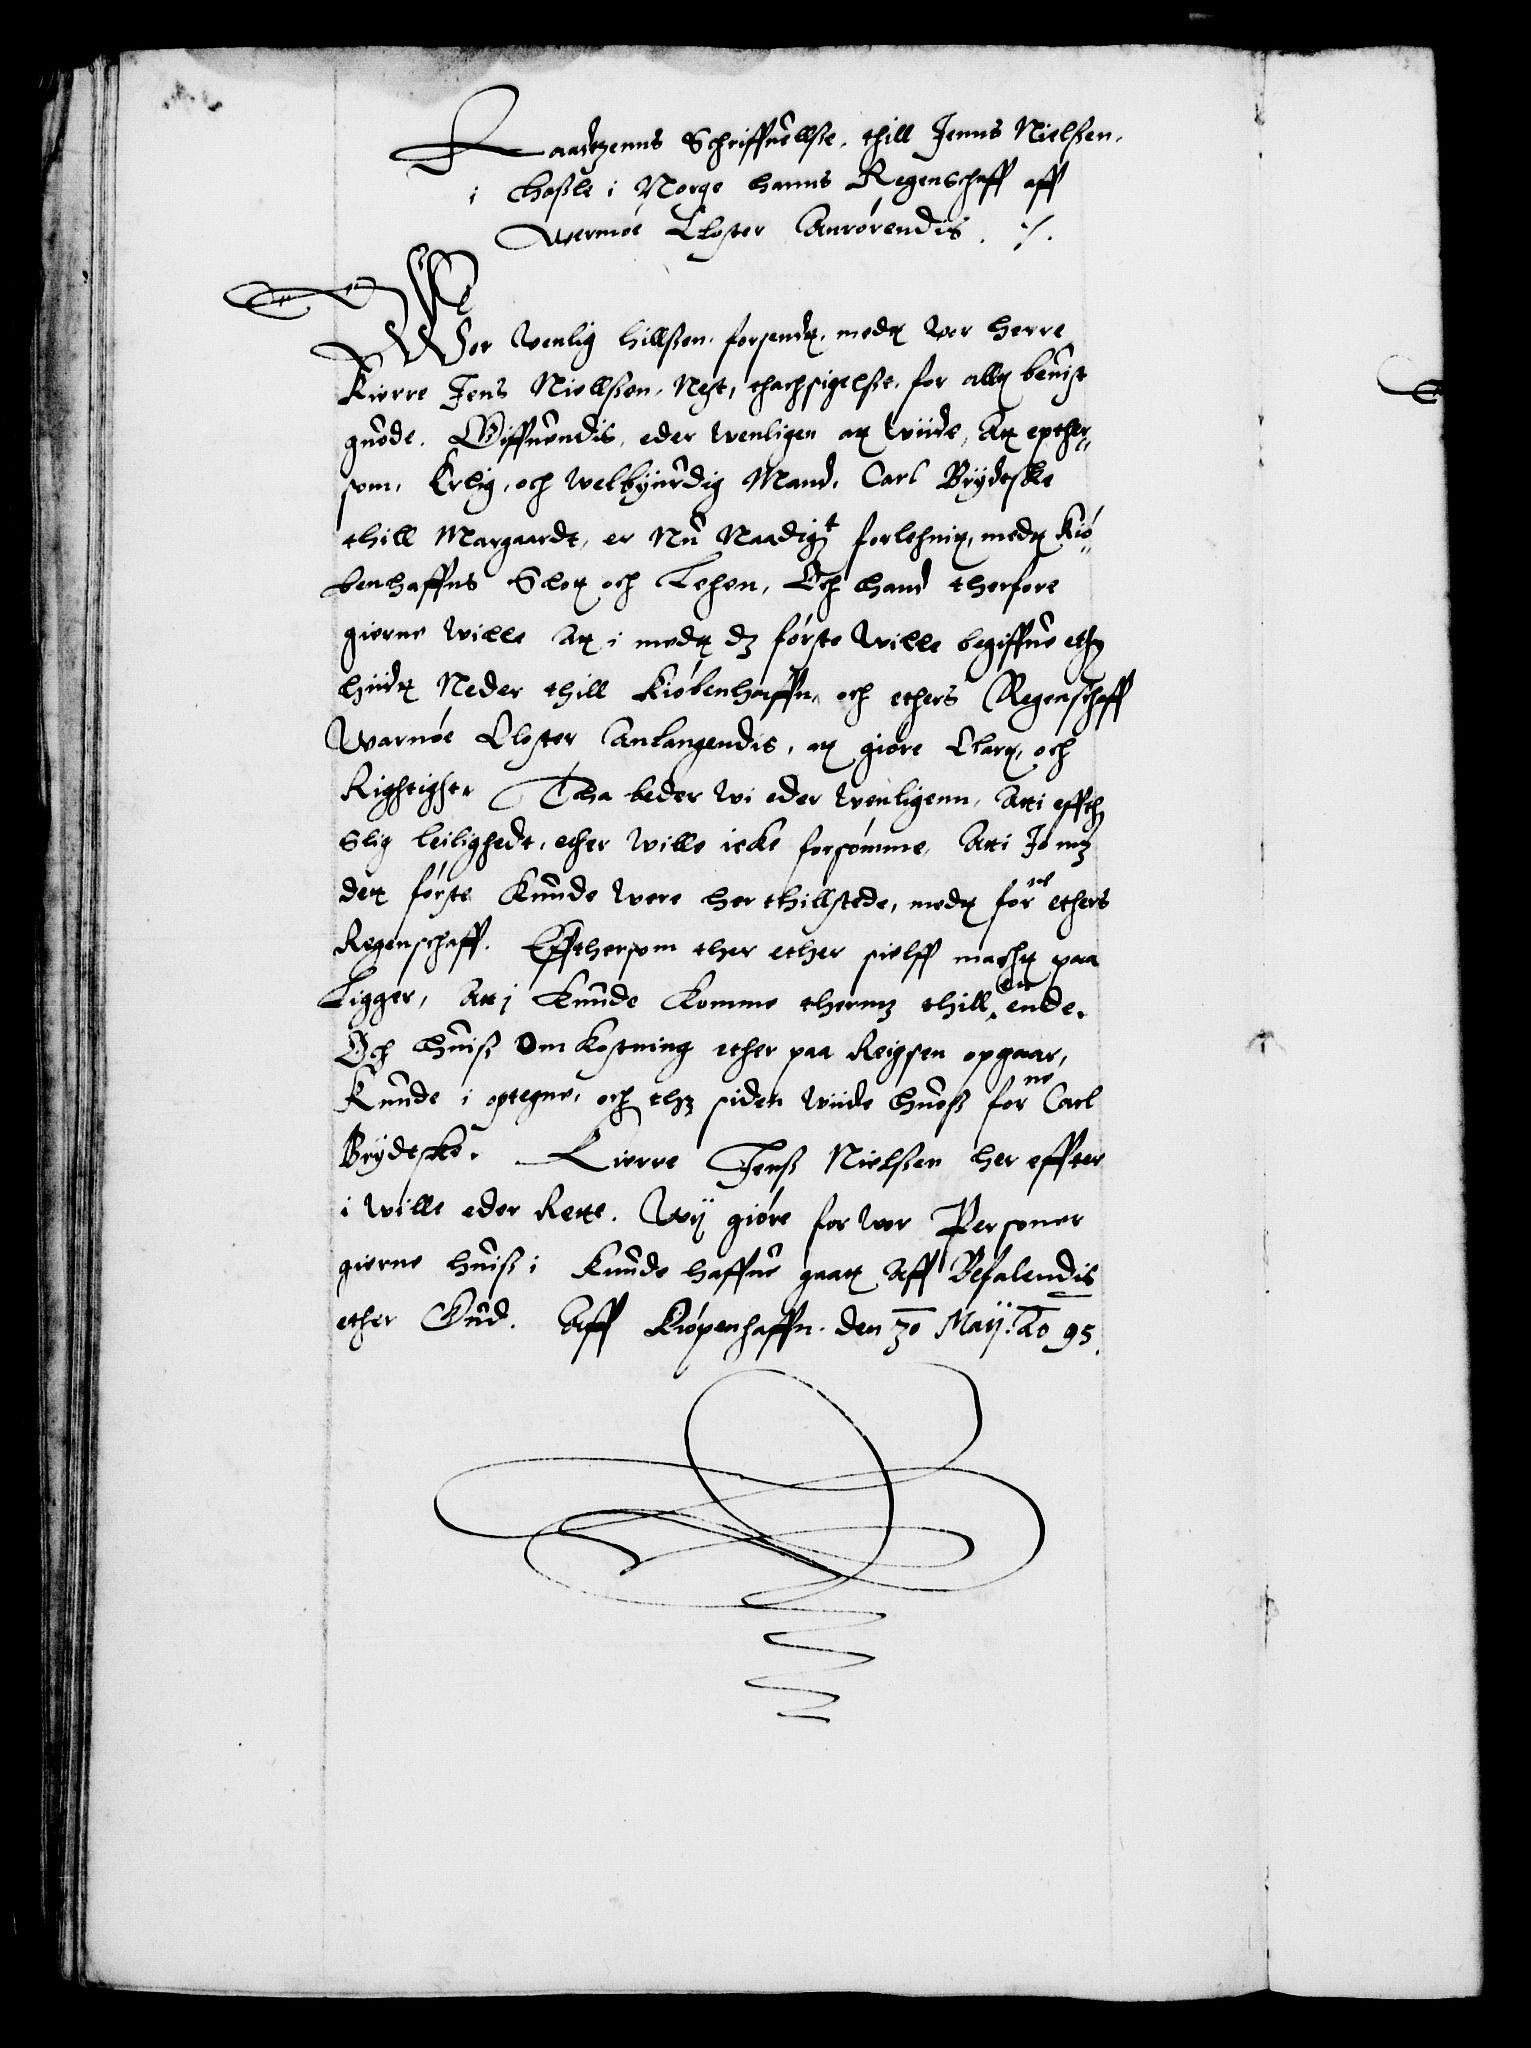 Raadtzenns Schriffuellsse, thill Jenns Nielssen.
i Hassle i Norge hanns Regenschaff aff
Wernøe Closter Anrørendis ./.
Wor Venlig hillssen, forsendt, medt Vor Herre
Kierre Jens Niellssen, Nest, thachsigelsse, for allt beuist
guode. Giffuendis, eder wenligen att wiide, Att epther¬
som, Erlig, och Welbyurdig Mand, Carl Brydtske
thill Margaardt, er Nu Naadigst forlehnit, medt Kiø¬
benhaffns Slott och Lehen, Och hand therfore
gierne wille Att i medt dz første Wille begiffue ether
hiidt Neder thill Kiøbenhaffn, och ethers Regenschaff
Warnøe Closter Anlangendis, att giøre Clart, och
Rightight. Tha beder Wi eder Wenligenn, Atti effther
Slig leilighedt, ether Wille icke forsømme, Atti Jo mz
dett første Kunde Were her thillstede, medt forne ethers
Regenschaff. Effthersom ther ether sielff macht paa
Ligger, Att j Kunde Komme thermz thill en ende.
Och huiss Omkostning ether paa Reigsen opgaar,
Kunde i optegne, och thz siden wiide huoss forne Carl
Brydtske. Kierre Jenss Nielssen her effter
i Wille eder Rette. Wij giøre for Wor Personer
gierne huiss i Kunde haffue gaat Aff Befalendis
ether Gud. Aff Kiøpenhaffn. den 30 Maij. Ao 95.